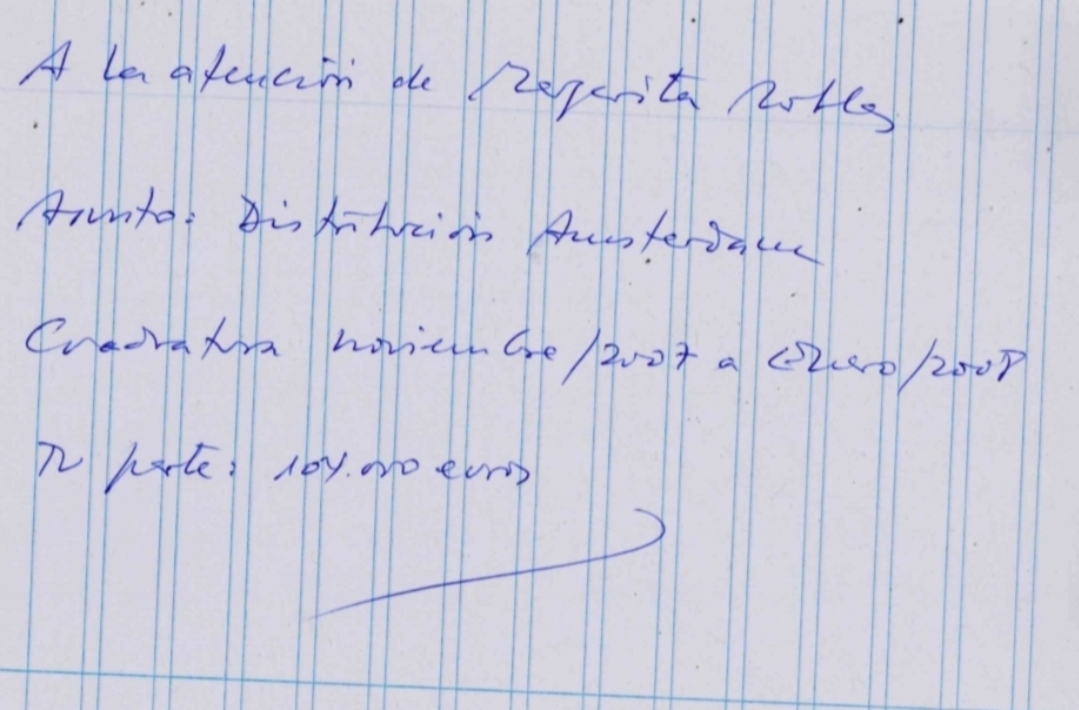 A la atención de Margarita Robles
Asunto: Distribución Amsterdam
Cuadratura noviembre/2007 a enero/2008
Tu parte: 104.000 euros